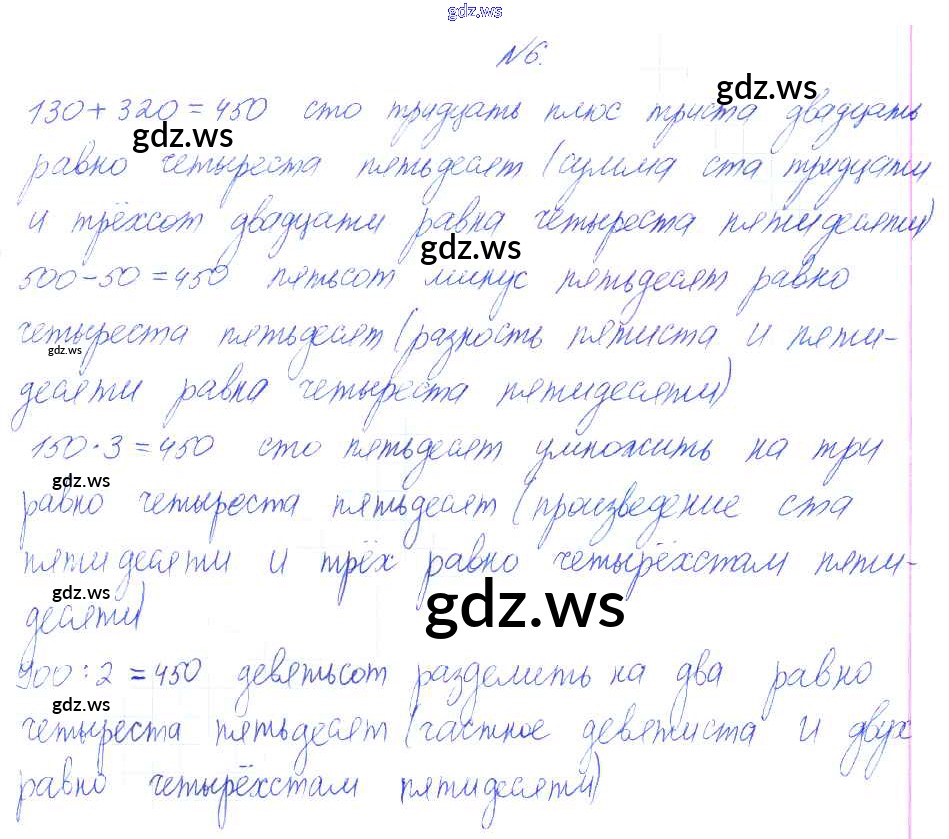 gdz.ws
№6.
gdz.ws
130 + 320 = 450 сто тридцать плюс триста двадцать
gdz.ws
равно четыреста пятьдесят (сумма ста тридцати
и трёхсот двадцати равна четыреста пятидесяти)
gdz.ws
500 - 50 = 450 пятьсот минус пятьдесят равно
четыреста пятьдесят (разность пятиста и пяти-
gdz.ws
десяти равна четыреста пятидесяти)
150 · 3 = 450 сто пятьдесят умножить на три
gdz.ws
равно четыреста пятьдесят (произведение ста
пятидесяти и трёх равно четырёхстам пяти-
gdz.ws
gdz.ws
десяти)
900 : 2 = 450 девятьсот разделить на два равно
gdz.ws
четыреста пятьдесят (частное девятиста и двух
равно четырёхстам пятидесяти)